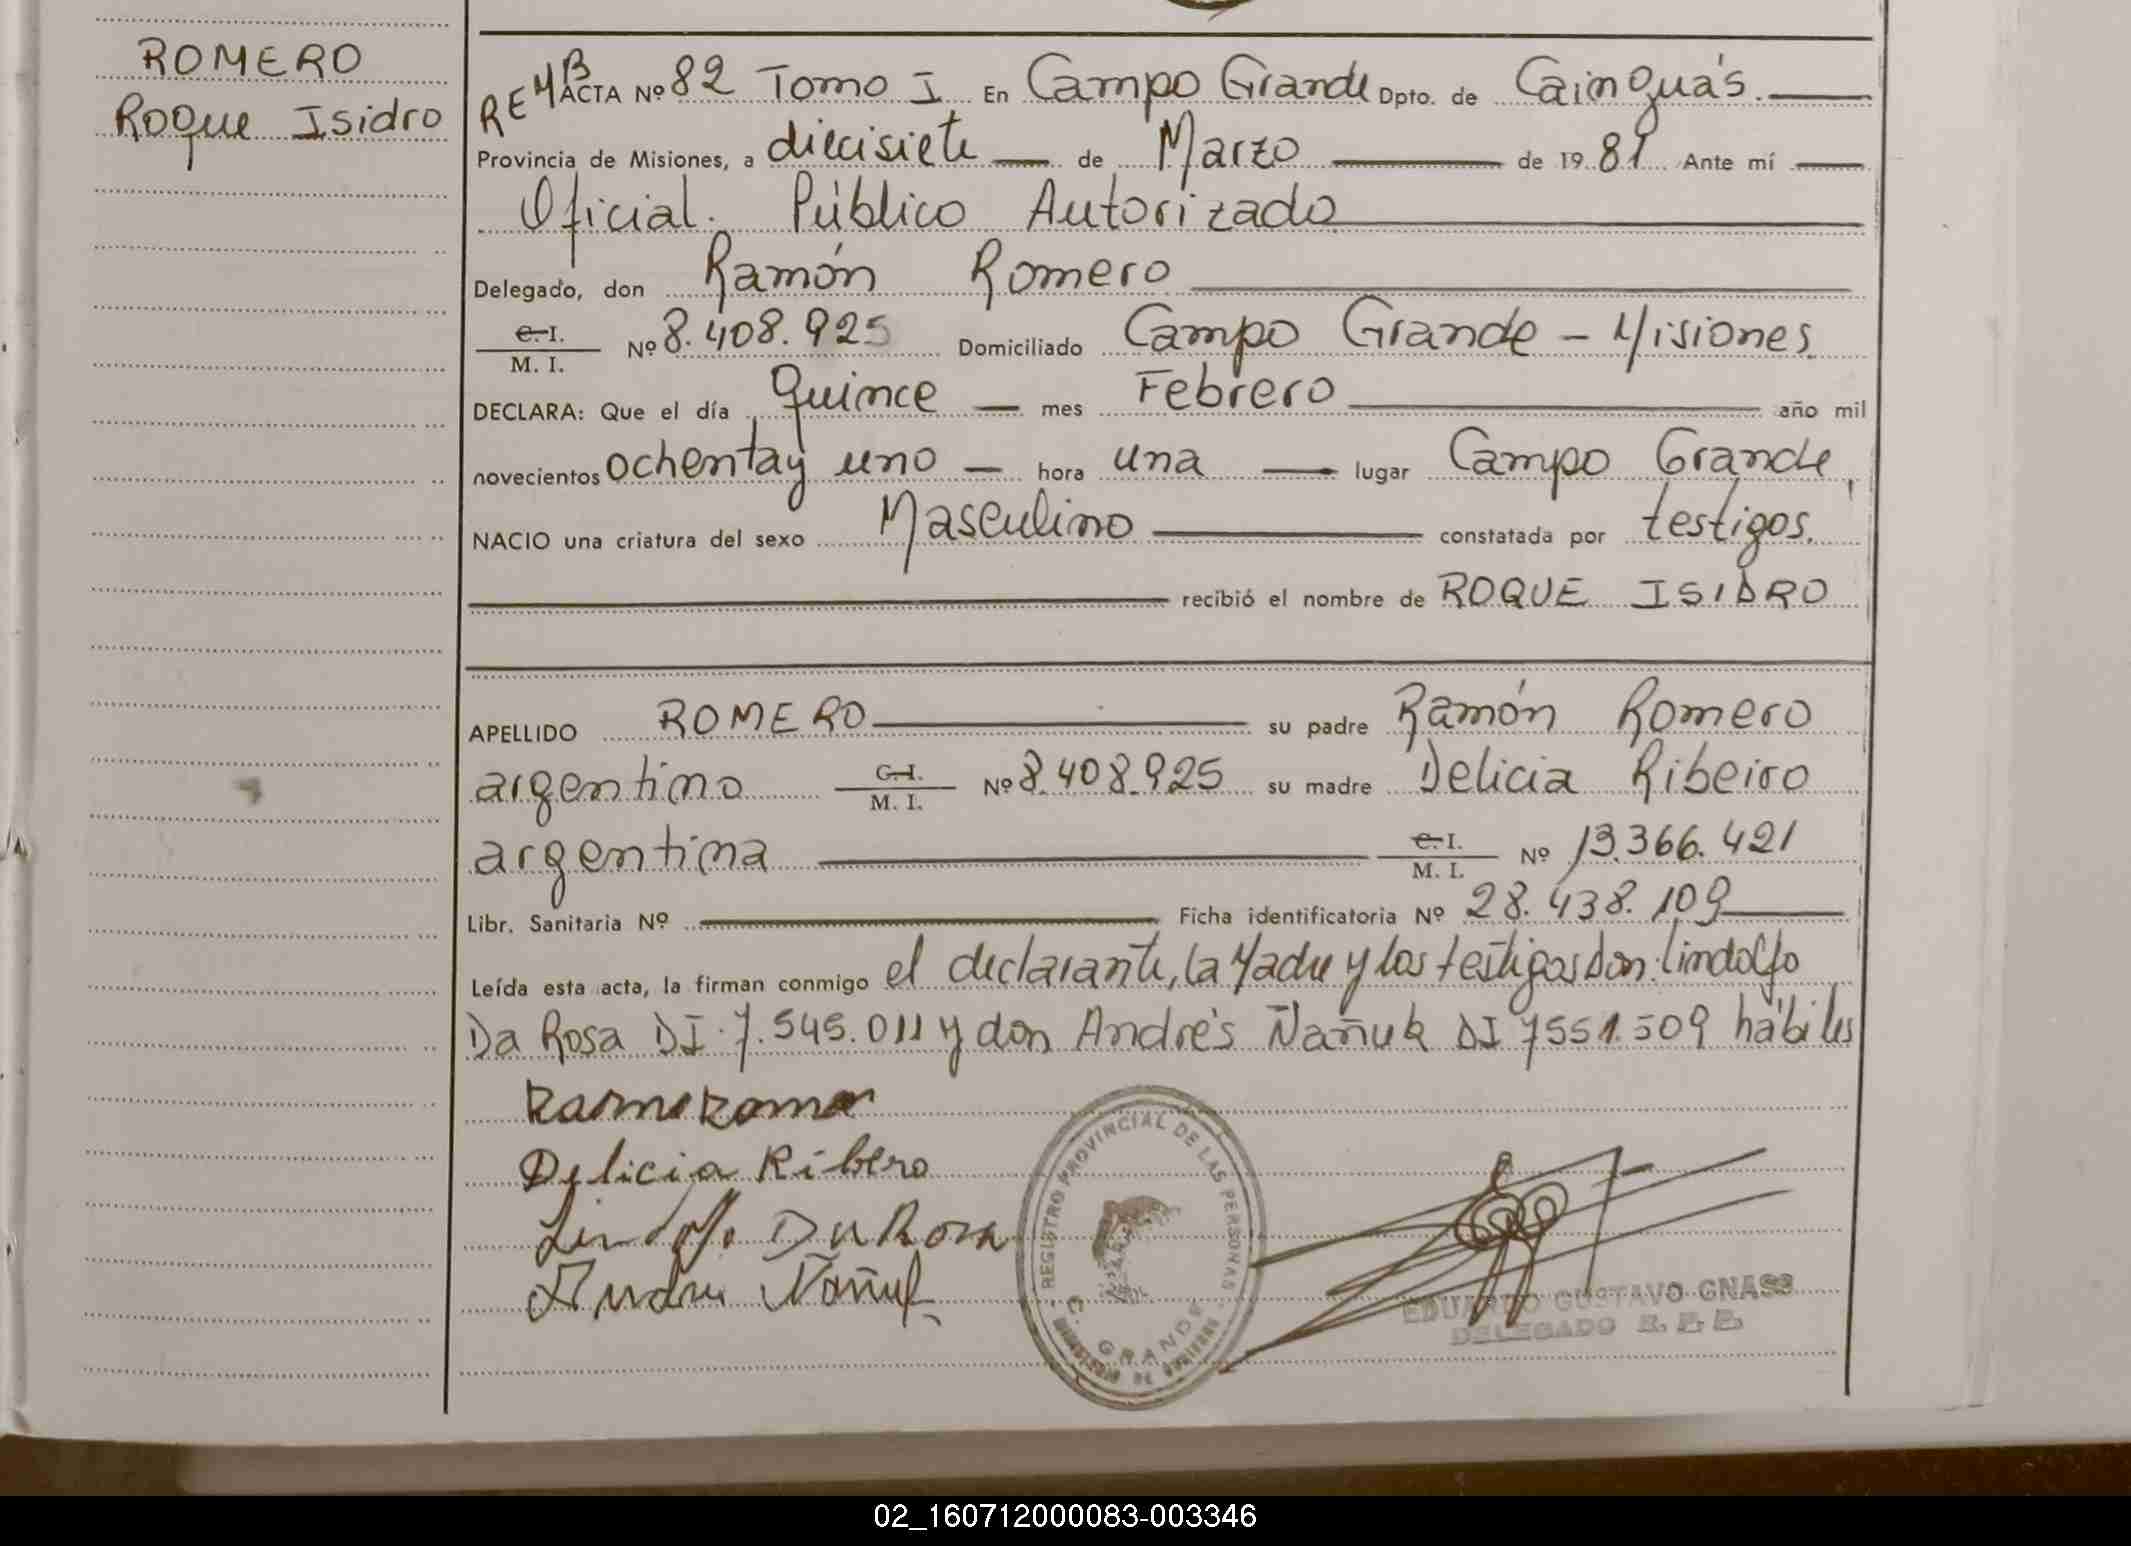 ROMERO
Roque Isidro
ACTA Nº 82 Tomo I En Campo Grande Dpto. de Cainguás.
Provincia de Misiones, a diecisiete de Marzo de 1981 Ante mí
Oficial Público Autorizado
Delegado, don Ramón Romero
C. I. M. I. Nº 8.408.925 Domiciliado Campo Grande - Misiones
DECLARA: Que el día quince mes Febrero año mil
novecientos ochenta y uno hora una lugar Campo Grande,
NACIO una criatura del sexo Masculino constatada por testigos.
recibió el nombre de ROQUE ISIDRO
APELLIDO ROMERO su padre Ramón Romero
argentino C. I. M. I. Nº 8.408.925 su madre Delicia Ribeiro
argentina C. I. M. I. Nº 13.366.421
Libr. Sanitaria Nº Ficha identificatoria Nº 28.438.109
Leída esta acta, la firman conmigo el declarante, la Madre y los testigos Don: Lindolfo
Da Rosa DI. 7.545.011 y don Andrés Ñañuk DI 7551.509 hábiles
Delicia Ribero
REGISTRO PROVINCIAL DE LAS PERSONAS
C. GRANDE
EDUARDO GUSTAVO GNASS
DELEGADO
02_160712000083-003346